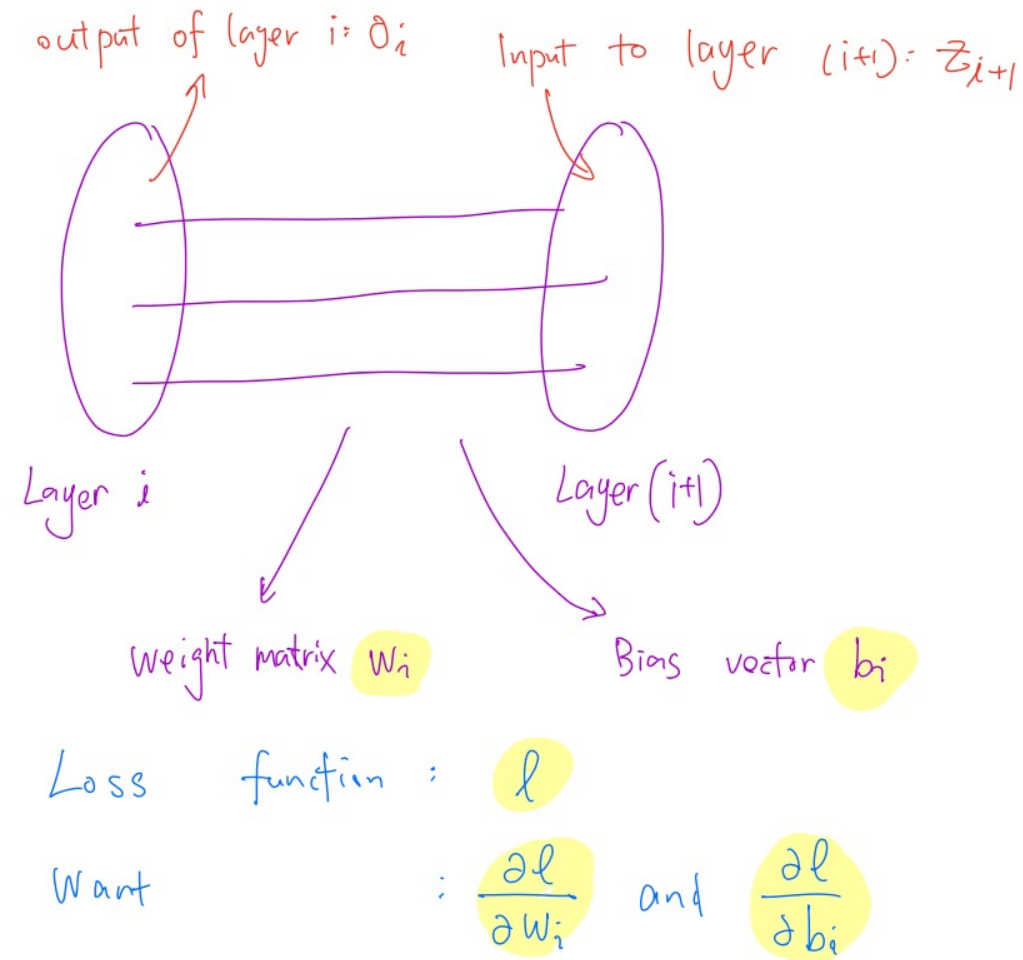 output of layer i: O_i
Input to layer (i+1): Z_{i+1}
Layer i
Layer (i+1)
weight matrix W_i
Bias vector b_i
Loss function : ℓ
Want : ∂ℓ/∂W_i and ∂ℓ/∂b_i